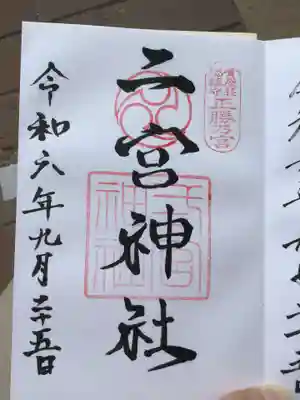 正勝乃宮
二宮神社
令和六年九月二十五日